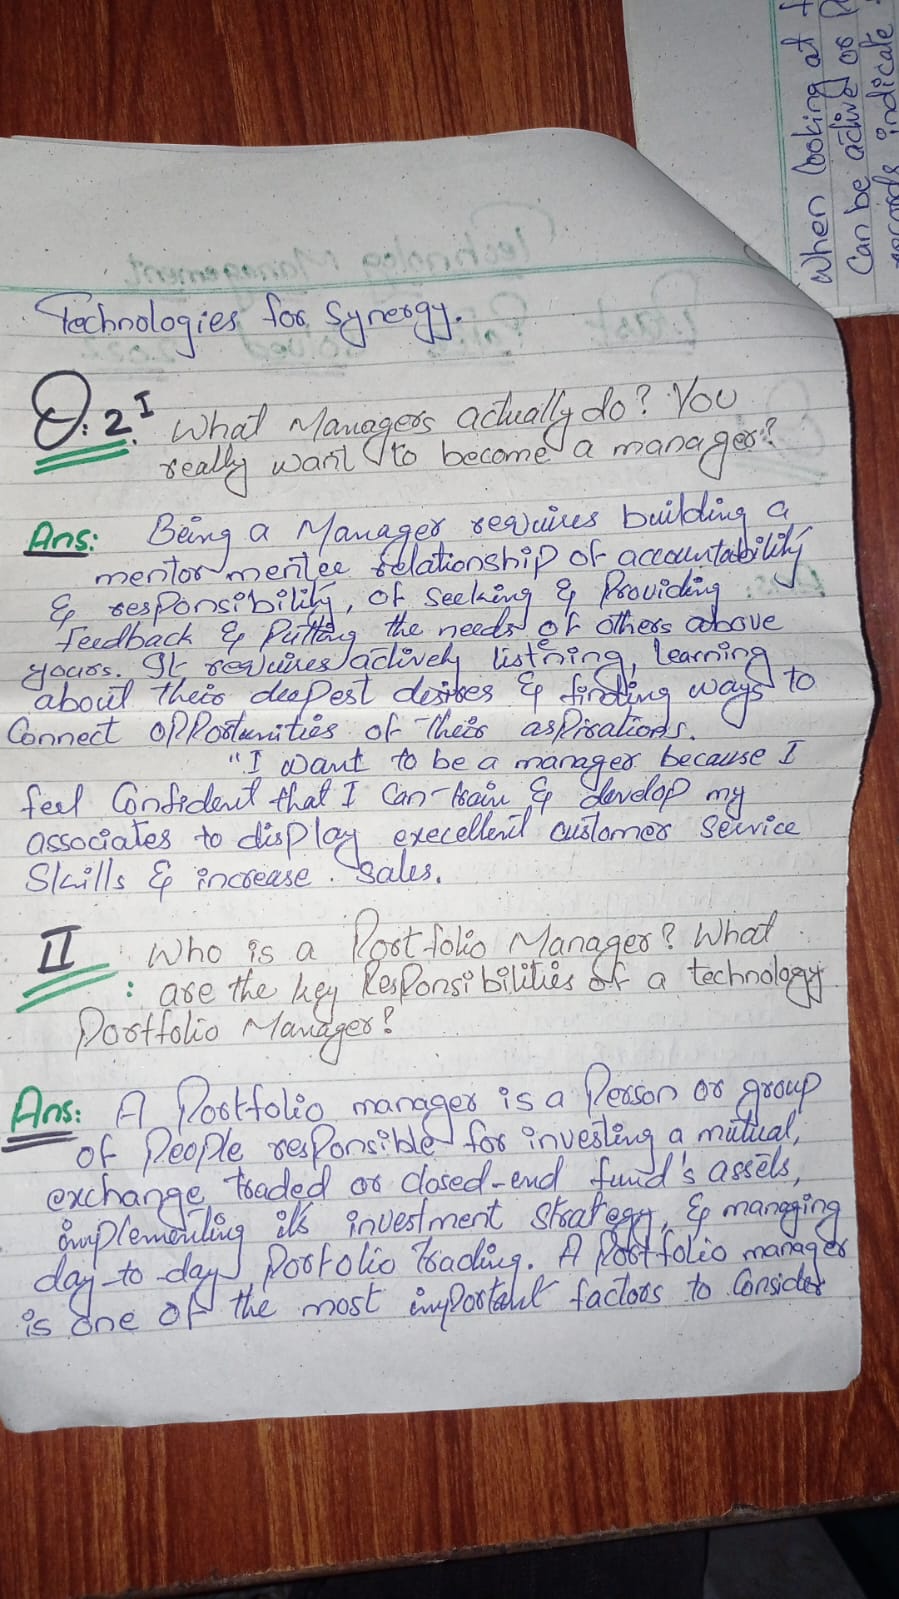 Technologies for Synergy.
Q.2 I What Managers actually do? You
really want to become a manager?
Ans: Being a Manager requires building a
mentor mentee relationship of accountability
& responsibility, of seeking & Providing
feedback & Putting the needs of others above
yours. It requires actively listning, learning
about their deepest desires & finding ways to
Connect opportunities of their aspirations.
"I want to be a manager because I
feel Confident that I Can train & develop my
associates to display execellent customer service
Skills & increase. Sales.
II Who is a Portfolio Manager? What
: are the key Responsibilities of a technology
Portfolio Manager?
Ans: A Portfolio manager is a Person or group
of People responsible for investing a mutual,
exchange traded or closed-end fund's assets,
implementing its investment strategy, & managing
day-to-day Portolio trading. A Portfolio manager
is one of the most important factors to Consider
When looking at
Can be active or
records indicate
Technology Management
Past Paper Solved